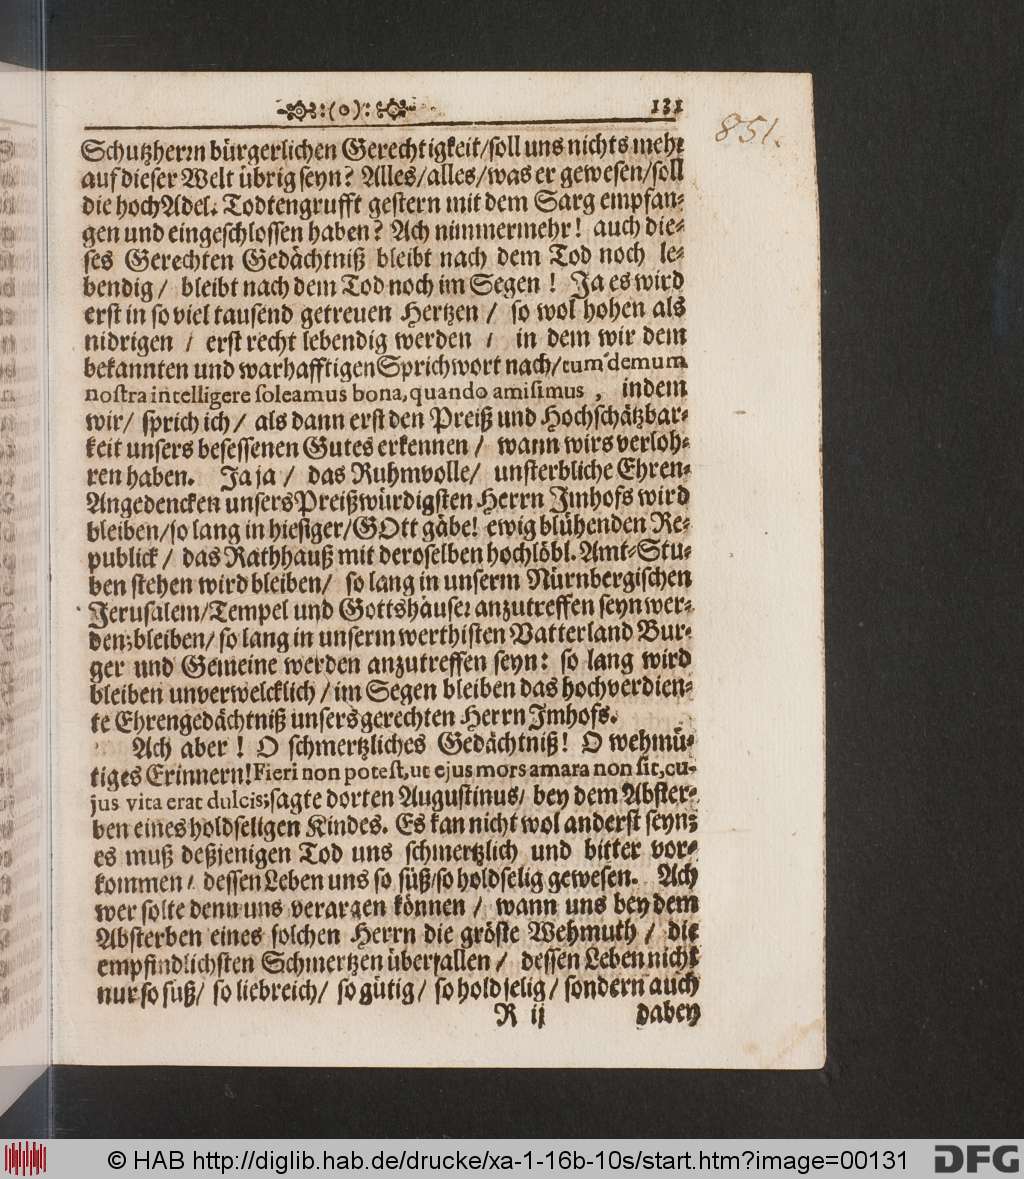 :(o): 131
851.
Schutzherrn bürgerlichen Gerechtigkeit/soll uns nichts mehr
auf dieser Welt übrig seyn? Alles/alles/was er gewesen/soll
die hochAdel. Todtengrufft gestern mit dem Sarg empfan-
gen und eingeschlossen haben? Ach nimmermehr! auch die-
ses Gerechten Gedächtniß bleibt nach dem Tod noch le-
bendig/ bleibt nach dem Tod noch im Segen! Ja es wird
erst in so viel tausend getreuen Hertzen/ so wol hohen als
nidrigen / erst recht lebendig werden / in dem wir dem
bekannten und warhafftigen Sprichwort nach/tum demum
nostra intelligere soleamus bona, quando amisimus, indem
wir/ sprich ich/ als dann erst den Preiß und Hochschätzbar-
keit unsers besessenen Gutes erkennen/ wann wirs verloh-
ren haben. Ja ja/ das Ruhmvolle/ unsterbliche Ehren-
Angedencken unsers Preißwürdigsten Herrn Jmhofs wird
bleiben/so lang in hiesiger/GOtt gäbe! ewig blühenden Re-
publick/ das Rathhauß mit deroselben hochlöbl. Amt-Stu-
ben stehen wird bleiben/ so lang in unserm Nürnbergischen
Jerusalem/Tempel und Gottshäuser anzutreffen seyn wer-
den; bleiben/ so lang in unserm werthisten Vatterland Bur-
ger und Gemeine werden anzutreffen seyn: so lang wird
bleiben unverwelcklich/ im Segen bleiben das hochverdien-
te Ehrengedächtniß unsers gerechten Herrn Jmhofs.
Ach aber! O schmertzliches Gedächtniß! O wehmü-
tiges Erinnern! Fieri non potest, ut ejus mors amara non sit, cu-
jus vita erat dulcis; sagte dorten Augustinus/ bey dem Abster-
ben eines holdseligen Kindes. Es kan nicht wol anderst seyn;
es muß deßjenigen Tod uns schmertzlich und bitter vor-
kommen/ dessen Leben uns so süß/so holdselig gewesen. Ach
wer solte denn uns verargen können/ wann uns bey dem
Absterben eines solchen Herrn die gröste Wehmuth/ die
empfindlichsten Schmertzen überfallen/ dessen Leben nicht
nur so süß/ so liebreich/ so gütig/ so holdselig/ sondern auch
R ij dabey
© HAB http://diglib.hab.de/drucke/xa-1-16b-10s/start.htm?image=00131 DFG